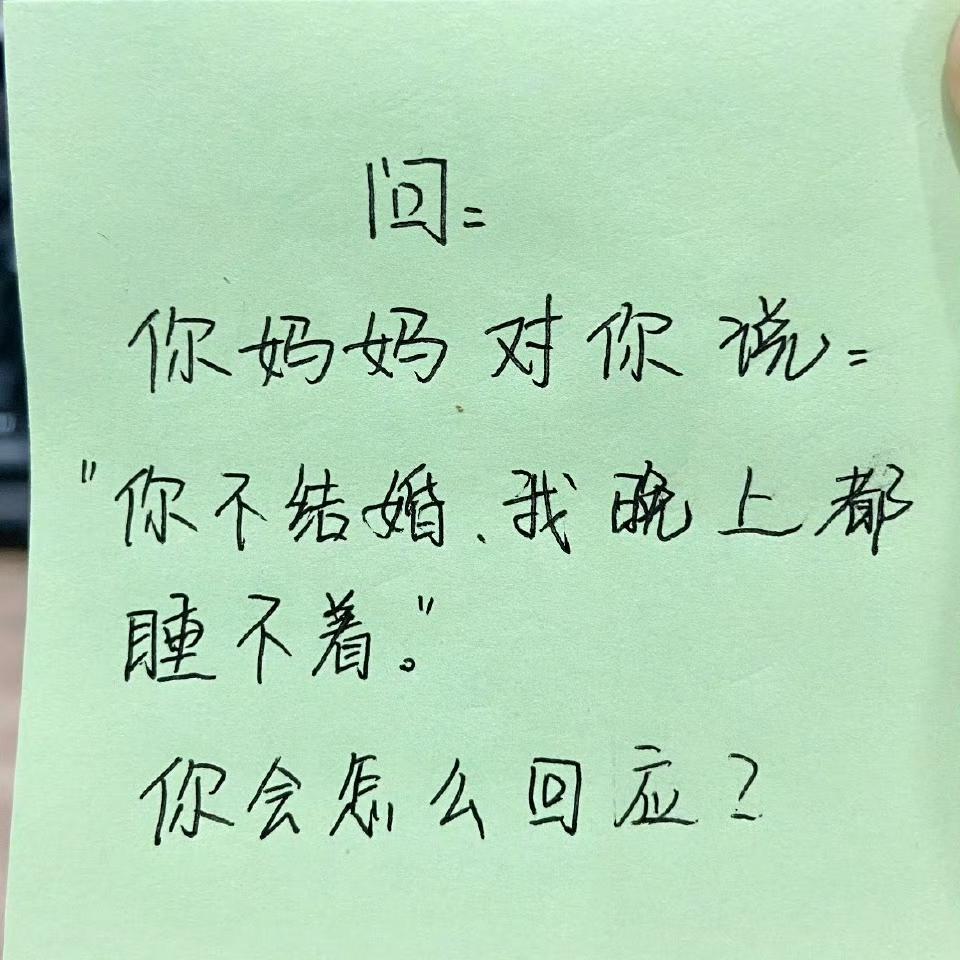 问：
你妈妈对你说：
"你不结婚、我晚上都
睡不着。"
你会怎么回应？